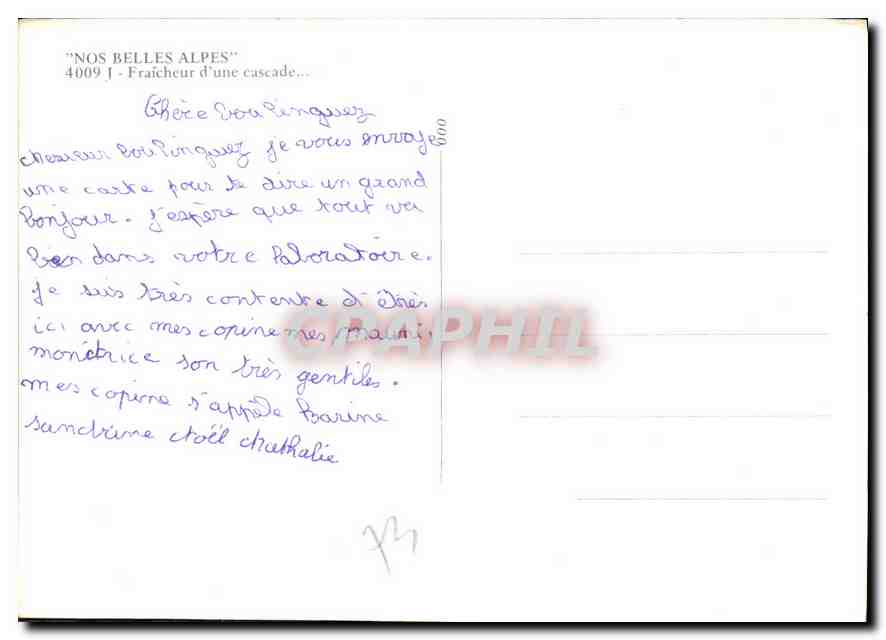 "NOS BELLES ALPES"
4009 J - Fraîcheur d'une cascade...
Chère Boulinguez
Monsieur Boulinguez je vous envoye
une carte pour te dire un grand
bonjour. J'espère que tout va
bien dans votre laboratoire.
Je suis très contente d'êtres
ici avec mes copine mes
monitrice son très gentiles.
mes copine s'appèle Karine
Sandrine Noël Nathalie
CPAPHIL